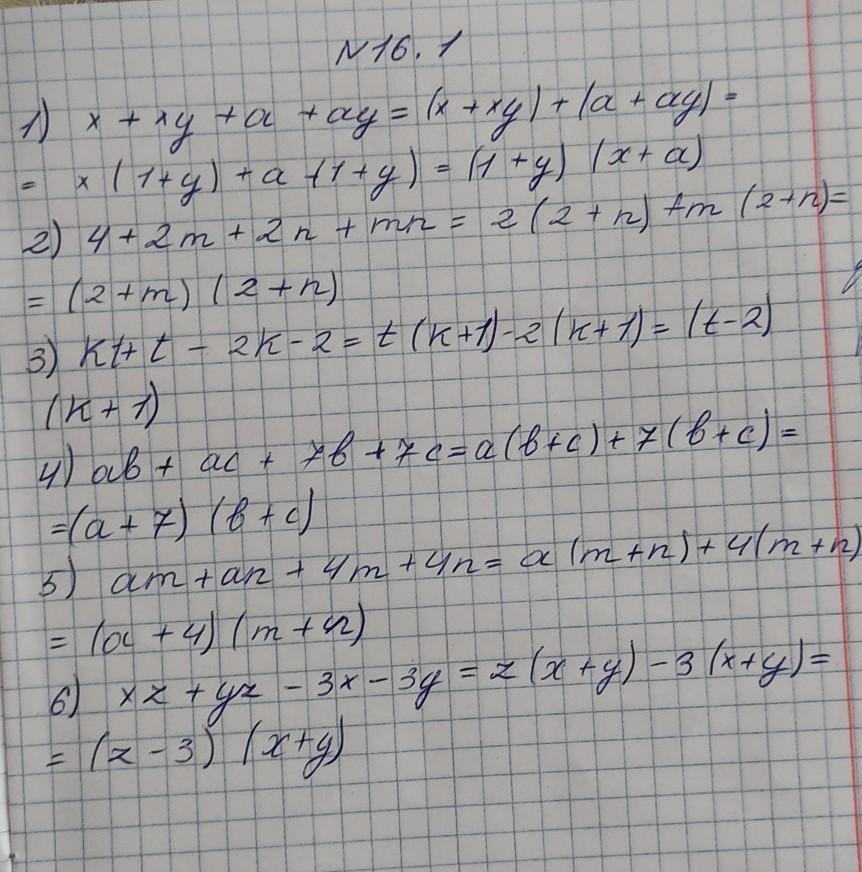 N16.1
1) x + xy + a + ay = (x + xy) + (a + ay) =
= x (1+y) + a (1+y) = (1+y) (x+a)
2) 4 + 2m + 2n + mn = 2(2+n) +m (2+n)=
= (2+m) (2+n)
3) kt+t - 2k-2 = t(k+1)-2(k+1) = (t-2)
(k+1)
4) ab + ac + 7b + 7c = a(b+c) + 7(b+c) =
=(a+7) (b+c)
5) am + an + 4m + 4n = a (m+n) + 4(m+n)
= (a+4) (m+n)
6) xz + yz - 3x - 3y = z(x+y) - 3(x+y) =
= (z-3) (x+y)